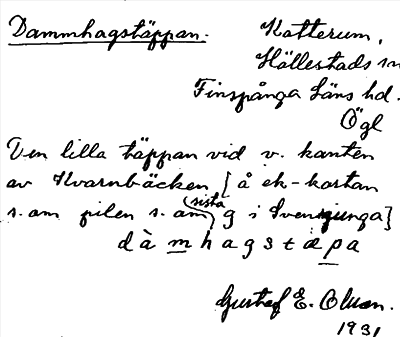 Dammhagstäppan.
Katterum,
Hällestads sn
Finspånga läns hd.
Ögl
Den lilla täppan vid v. kanten
av Kvarnbäcken [å ek-kartan
s.om pilen s.om sista g i Svenunga]
dàmhagstäpa
Gustaf E. Olson.
1931